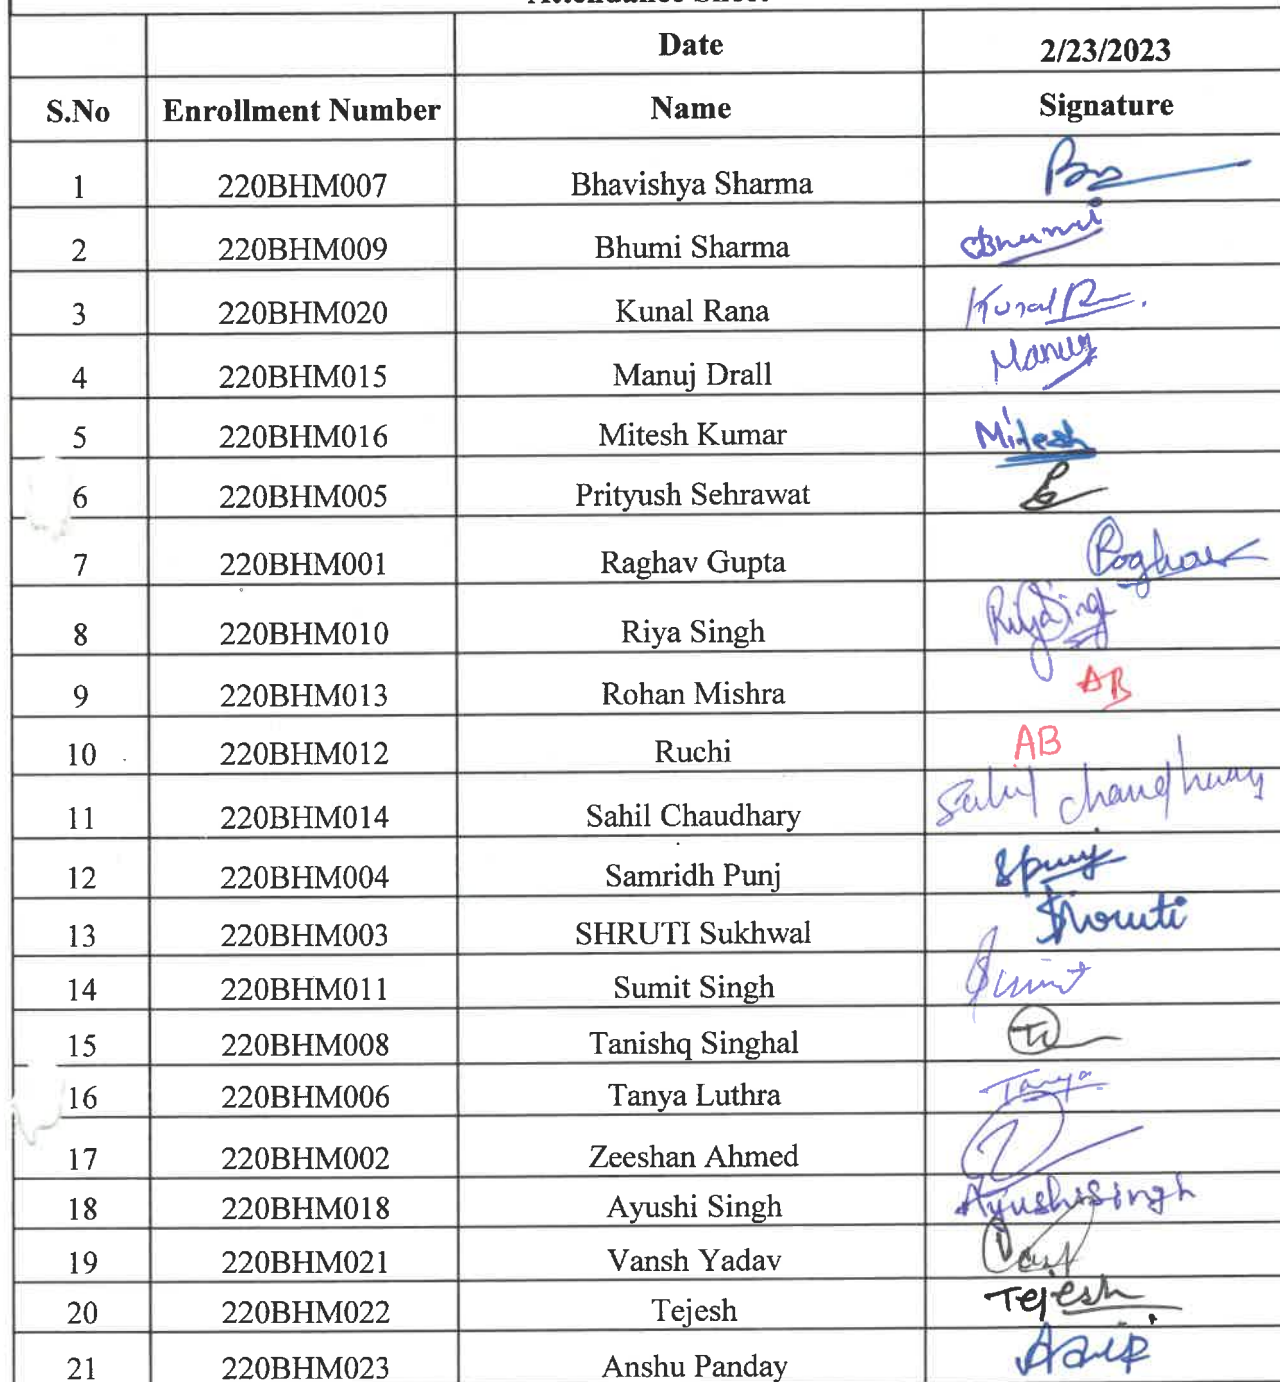 Date 2/23/2023
S.No Enrollment Number Name Signature
1 220BHM007 Bhavishya Sharma
2 220BHM009 Bhumi Sharma Bhumi
3 220BHM020 Kunal Rana Kunal R
4 220BHM015 Manuj Drall Manuj
5 220BHM016 Mitesh Kumar Mitesh
6 220BHM005 Prityush Sehrawat
7 220BHM001 Raghav Gupta Raghav
8 220BHM010 Riya Singh Riya Singh
9 220BHM013 Rohan Mishra AB
10 220BHM012 Ruchi AB
11 220BHM014 Sahil Chaudhary Sahil Chaudhary
12 220BHM004 Samridh Punj
13 220BHM003 SHRUTI Sukhwal Shruti
14 220BHM011 Sumit Singh Sumit
15 220BHM008 Tanishq Singhal
16 220BHM006 Tanya Luthra Tanya
17 220BHM002 Zeeshan Ahmed
18 220BHM018 Ayushi Singh Ayushi Singh
19 220BHM021 Vansh Yadav
20 220BHM022 Tejesh Tejesh
21 220BHM023 Anshu Panday